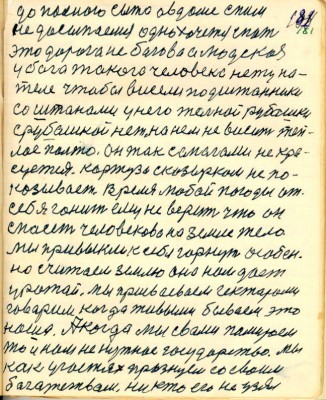 181
до полного сыто авдоме спим
недосыпаемя одно хочет спат
это дорога не богова а людская
у бога такого человека нету на-
теле чтобы висели подштанники
со штанами у него желной рубашки
с рубашкой нет на нем не висит теп-
лое палто. он так сапагами не кра-
суется картуз с козырком не по-
козывает время любой погоды от
себя гонит ему не верят что он
спасет человека на земле тело
мы привыкли к себе горнут особен-
но считаем землю она нам дает
урожай. мы приваеваем гектарами
говорим когда живыми бываем это
наша. А когда мы с вами
то и нам не нужное государство. мы
как участки со своим
багатством. никто его не узял